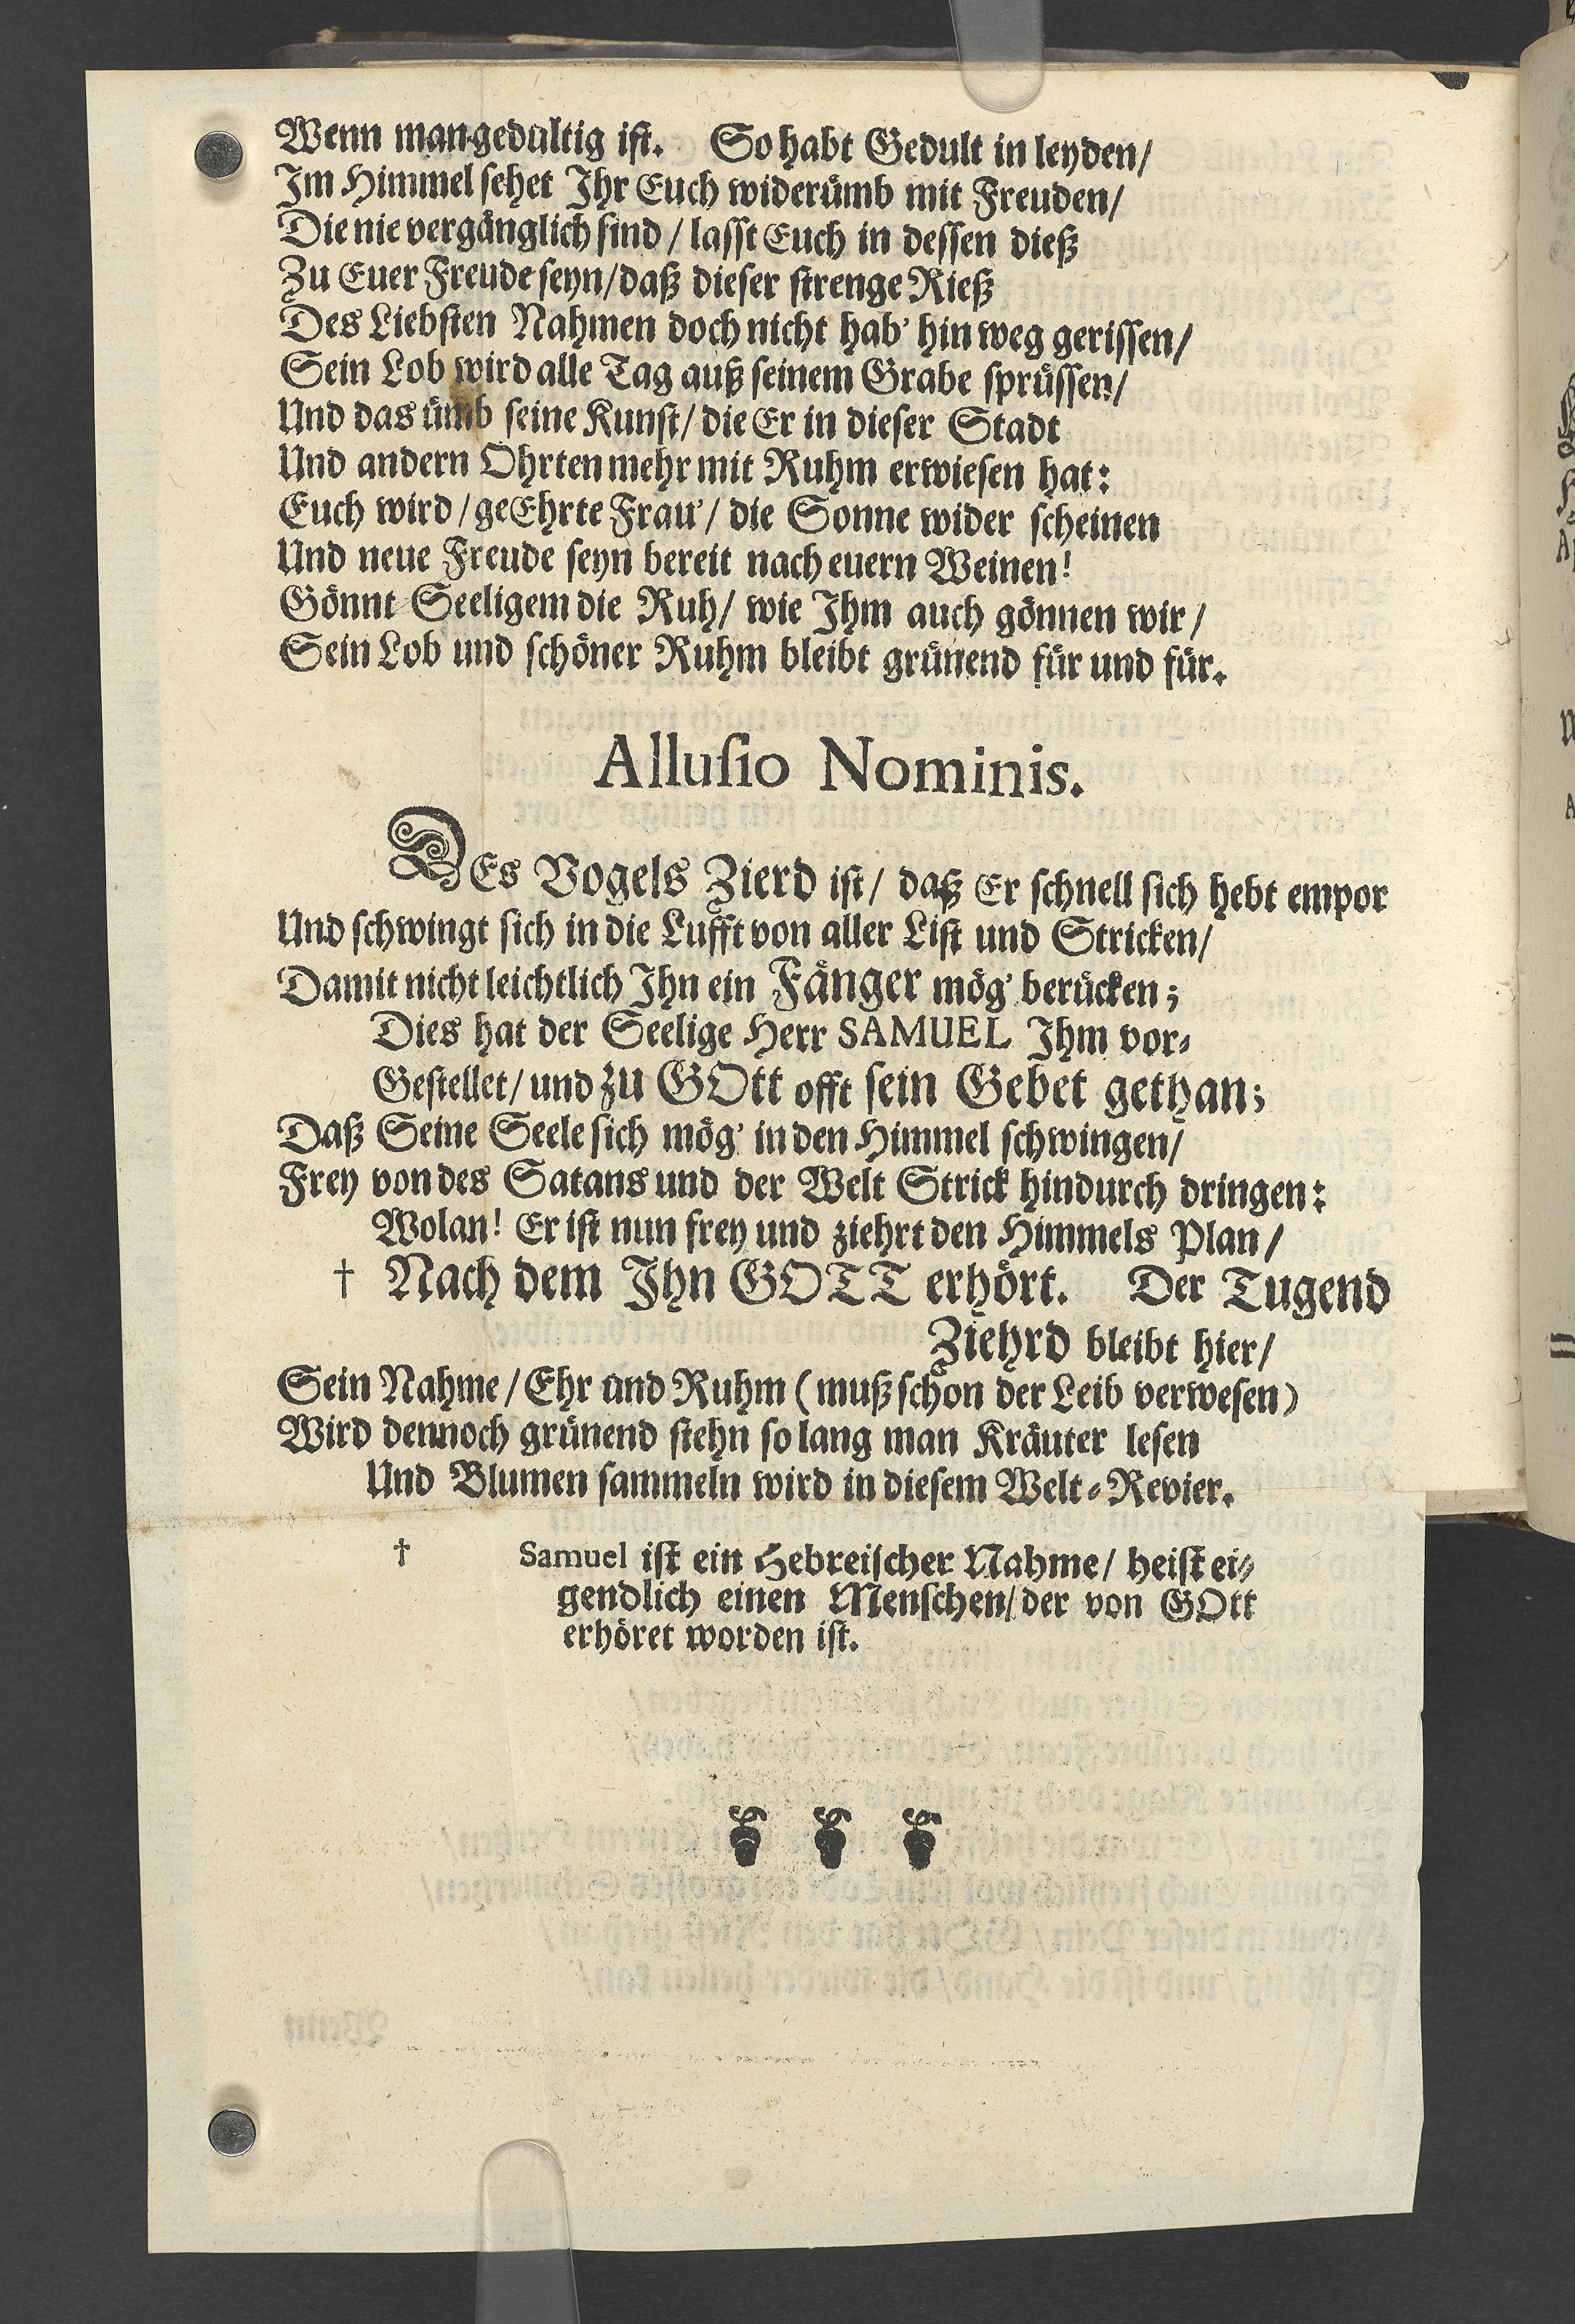 Wenn man gedultig ist. So habt Gedult in leyden/
Im Himmel sehet Ihr Euch widerümb mit Freuden/
Die nie vergänglich sind / lasst Euch in dessen dieß
Zu Euer Freude seyn/daß dieser strenge Rieß
Des Liebsten Nahmen doch nicht hab' hin weg gerissen/
Sein Lob wird alle Tag auß seinem Grabe sprüssen/
Und das ümb seine Kunst/ die Er in dieser Stadt
Und andern Ohrten mehr mit Ruhm erwiesen hat:
Euch wird / geEhrte Frau' / die Sonne wider scheinen
Und neue Freude seyn bereit nach euern Weinen!
Gönnt Seeligem die Ruh/ wie Ihm auch gönnen wir/
Sein Lob und schöner Ruhm bleibt grünend für und für.
Allusio Nominis.
DEs Vogels Zierd ist/ daß Er schnell sich hebt empor
Und schwingt sich in die Lufft von aller List und Stricken/
Damit nicht leichtlich Ihn ein Fänger mög' berücken;
Dies hat der Seelige Herr SAMUEL Ihm vor-
Gestellet/ und zu GOtt offt sein Gebet gethan;
Daß Seine Seele sich mög' in den Himmel schwingen/
Frey von des Satans und der Welt Strick hindurch dringen:
Wolan! Er ist nun frey und ziehrt den Himmels Plan/
† Nach dem Ihn GOTT erhört. Der Tugend
Ziehrd bleibt hier/
Sein Nahme / Ehr und Ruhm (muß schon der Leib verwesen)
Wird dennoch grünend stehn so lang man Kräuter lesen
Und Blumen sammeln wird in diesem Welt-Revier.
† Samuel ist ein Hebreischer Nahme/ heist ei-
gendlich einen Menschen/ der von GOtt
erhöret worden ist.